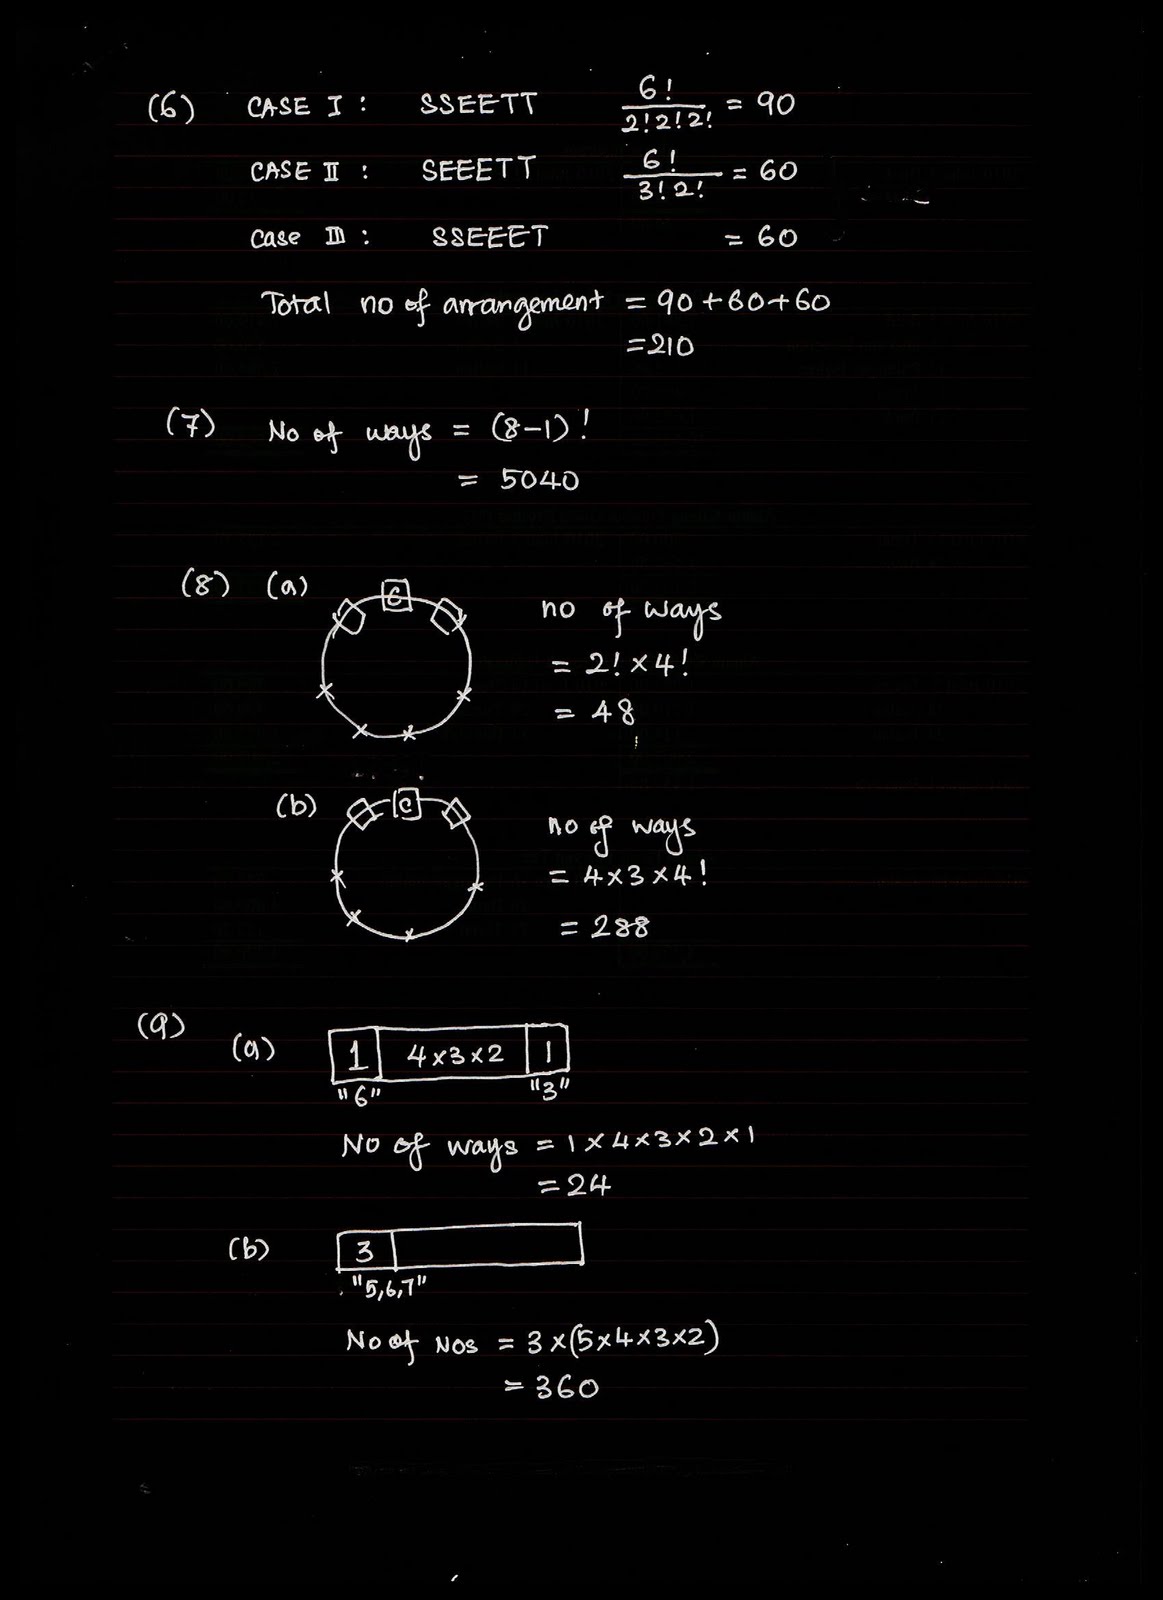 (6) CASE I : SSEETT 6!/2!2!2! = 90
CASE II : SEEETT 6!/3!2! = 60
Case III : SSEEET = 60
Total no of arrangement = 90+60+60
=210
(7) No of ways = (8-1)!
= 5040
(8) (a) C no of ways
= 2! × 4!
= 48
(b) C no of ways
= 4×3×4!
= 288
(9) (a) 1 4×3×2 1
"6" "3"
No of ways = 1×4×3×2×1
=24
(b) 3
"5,6,7"
No of Nos = 3×(5×4×3×2)
= 360